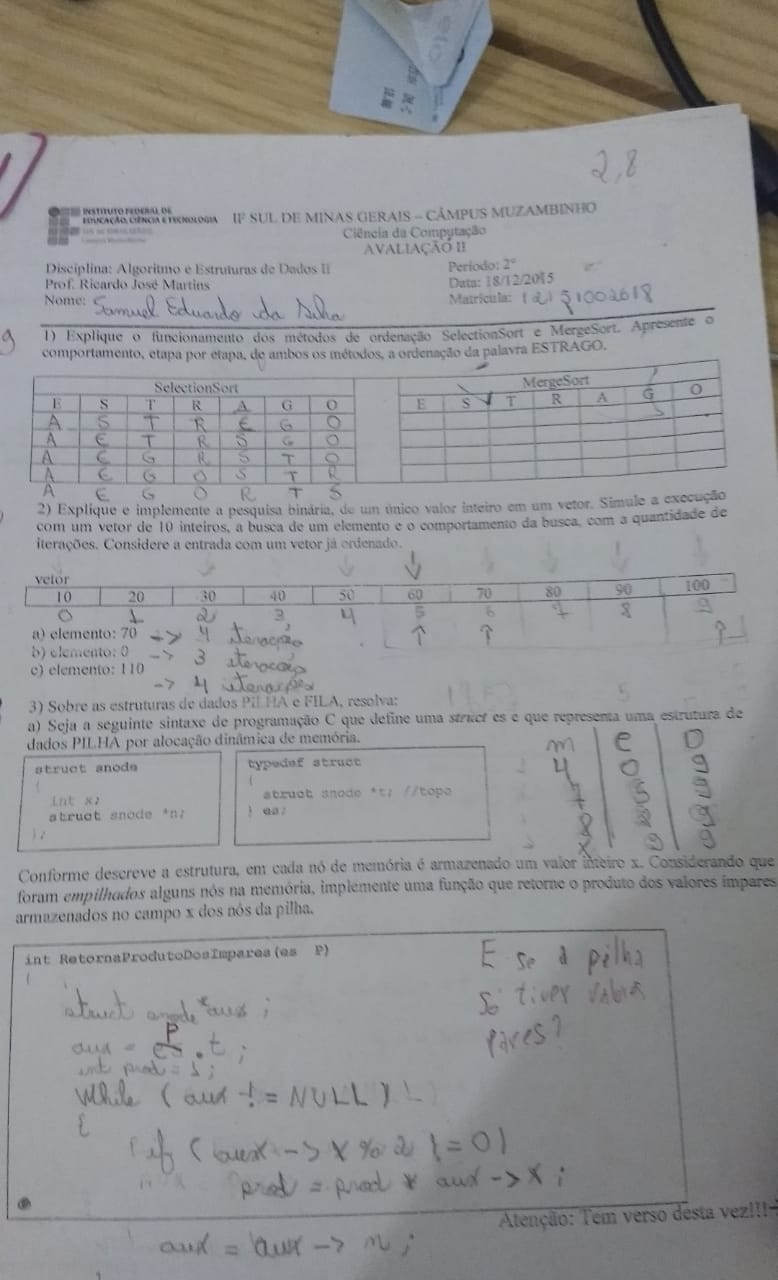 2,8
INSTITUTO FEDERAL DE
EDUCAÇÃO, CIÊNCIA E TECNOLOGIA
IF SUL DE MINAS GERAIS – CÂMPUS MUZAMBINHO
Ciência da Computação
AVALIAÇÃO II
Disciplina: Algoritmo e Estruturas de Dados II Período: 2°
Prof. Ricardo José Martins Data: 18/12/2015
Nome: Samuel Eduardo da Silva Matrícula: 12151002618
1) Explique o funcionamento dos métodos de ordenação SelectionSort e MergeSort. Apresente o
comportamento, etapa por etapa, de ambos os métodos, a ordenação da palavra ESTRAGO.
SelectionSort MergeSort
E S T R A G O E S T R A G O
A S T R E G O
A E T R S G O
A E G R S T O
A E G O S T R
A E G O R T S
2) Explique e implemente a pesquisa binária, de um único valor inteiro em um vetor. Simule a execução
com um vetor de 10 inteiros, a busca de um elemento e o comportamento da busca, com a quantidade de
iterações. Considere a entrada com um vetor já ordenado.
vetor
10 20 30 40 50 60 70 80 90 100
0 1 2 3 4 5 6 7 8 9
a) elemento: 70 -> 4 iteração
b) elemento: 0 -> 3 iterações
c) elemento: 110
-> 4 iterações
3) Sobre as estruturas de dados PILHA e FILA, resolva:
a) Seja a seguinte sintaxe de programação C que define uma struct es e que representa uma estrutura de
dados PILHA por alocação dinâmica de memória.
m e D
4 0 9
7 5 9
8 8 9
x 9 9
struct snode
{
int x;
struct snode *n;
};
typedef struct
{
struct snode *t; //topo
} es;
Conforme descreve a estrutura, em cada nó de memória é armazenado um valor inteiro x. Considerando que
foram empilhados alguns nós na memória, implemente uma função que retorne o produto dos valores ímpares
armazenados no campo x dos nós da pilha.
int RetornaProdutoDosImpares(es P)
{
E se a pilha
só tiver valores
pares?
struct snode *aux;
aux = P.t;
int prod = 1;
while (aux != NULL)
{
if (aux -> x % 2 != 0)
prod = prod * aux -> x;
Atenção: Tem verso desta vez!!!
aux = aux -> n;